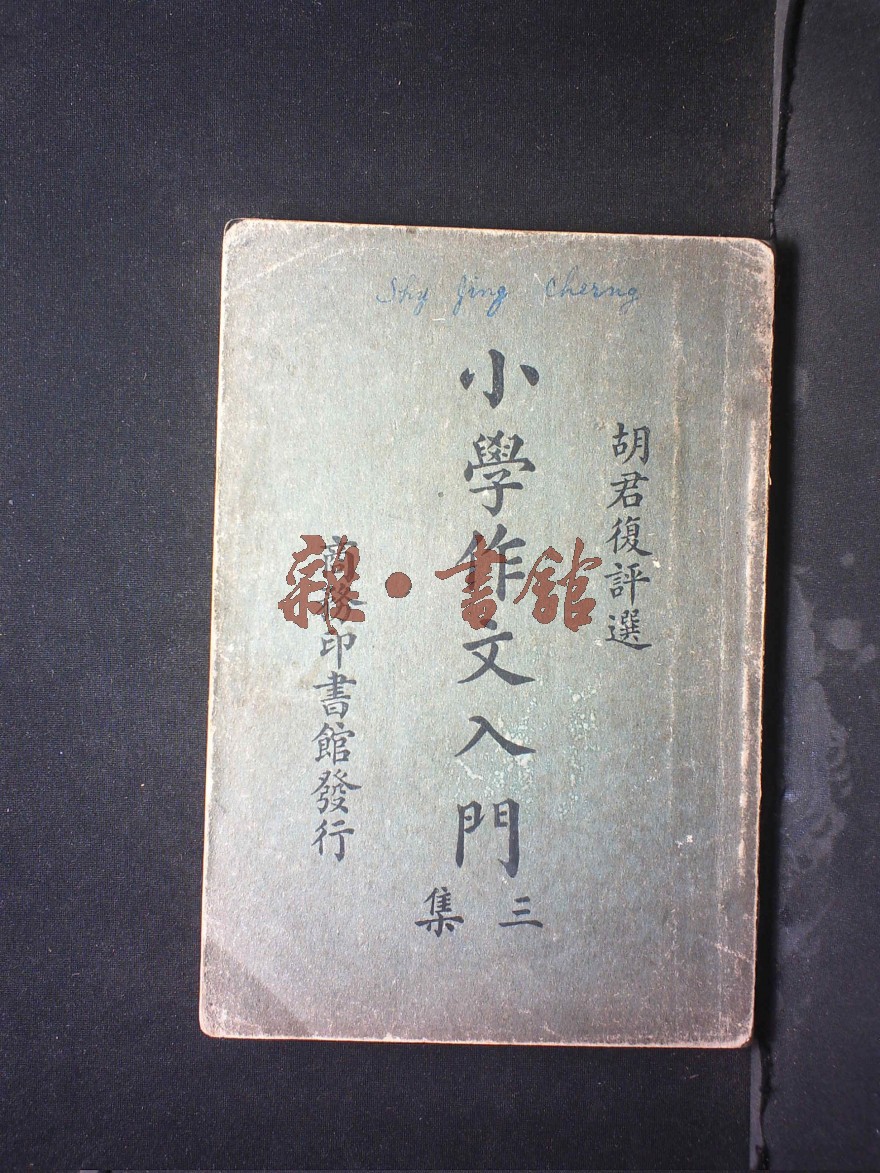 Shy Jing Cherng
胡君復評選
小學作文入門
三集
商務印書館發行
雜·書館